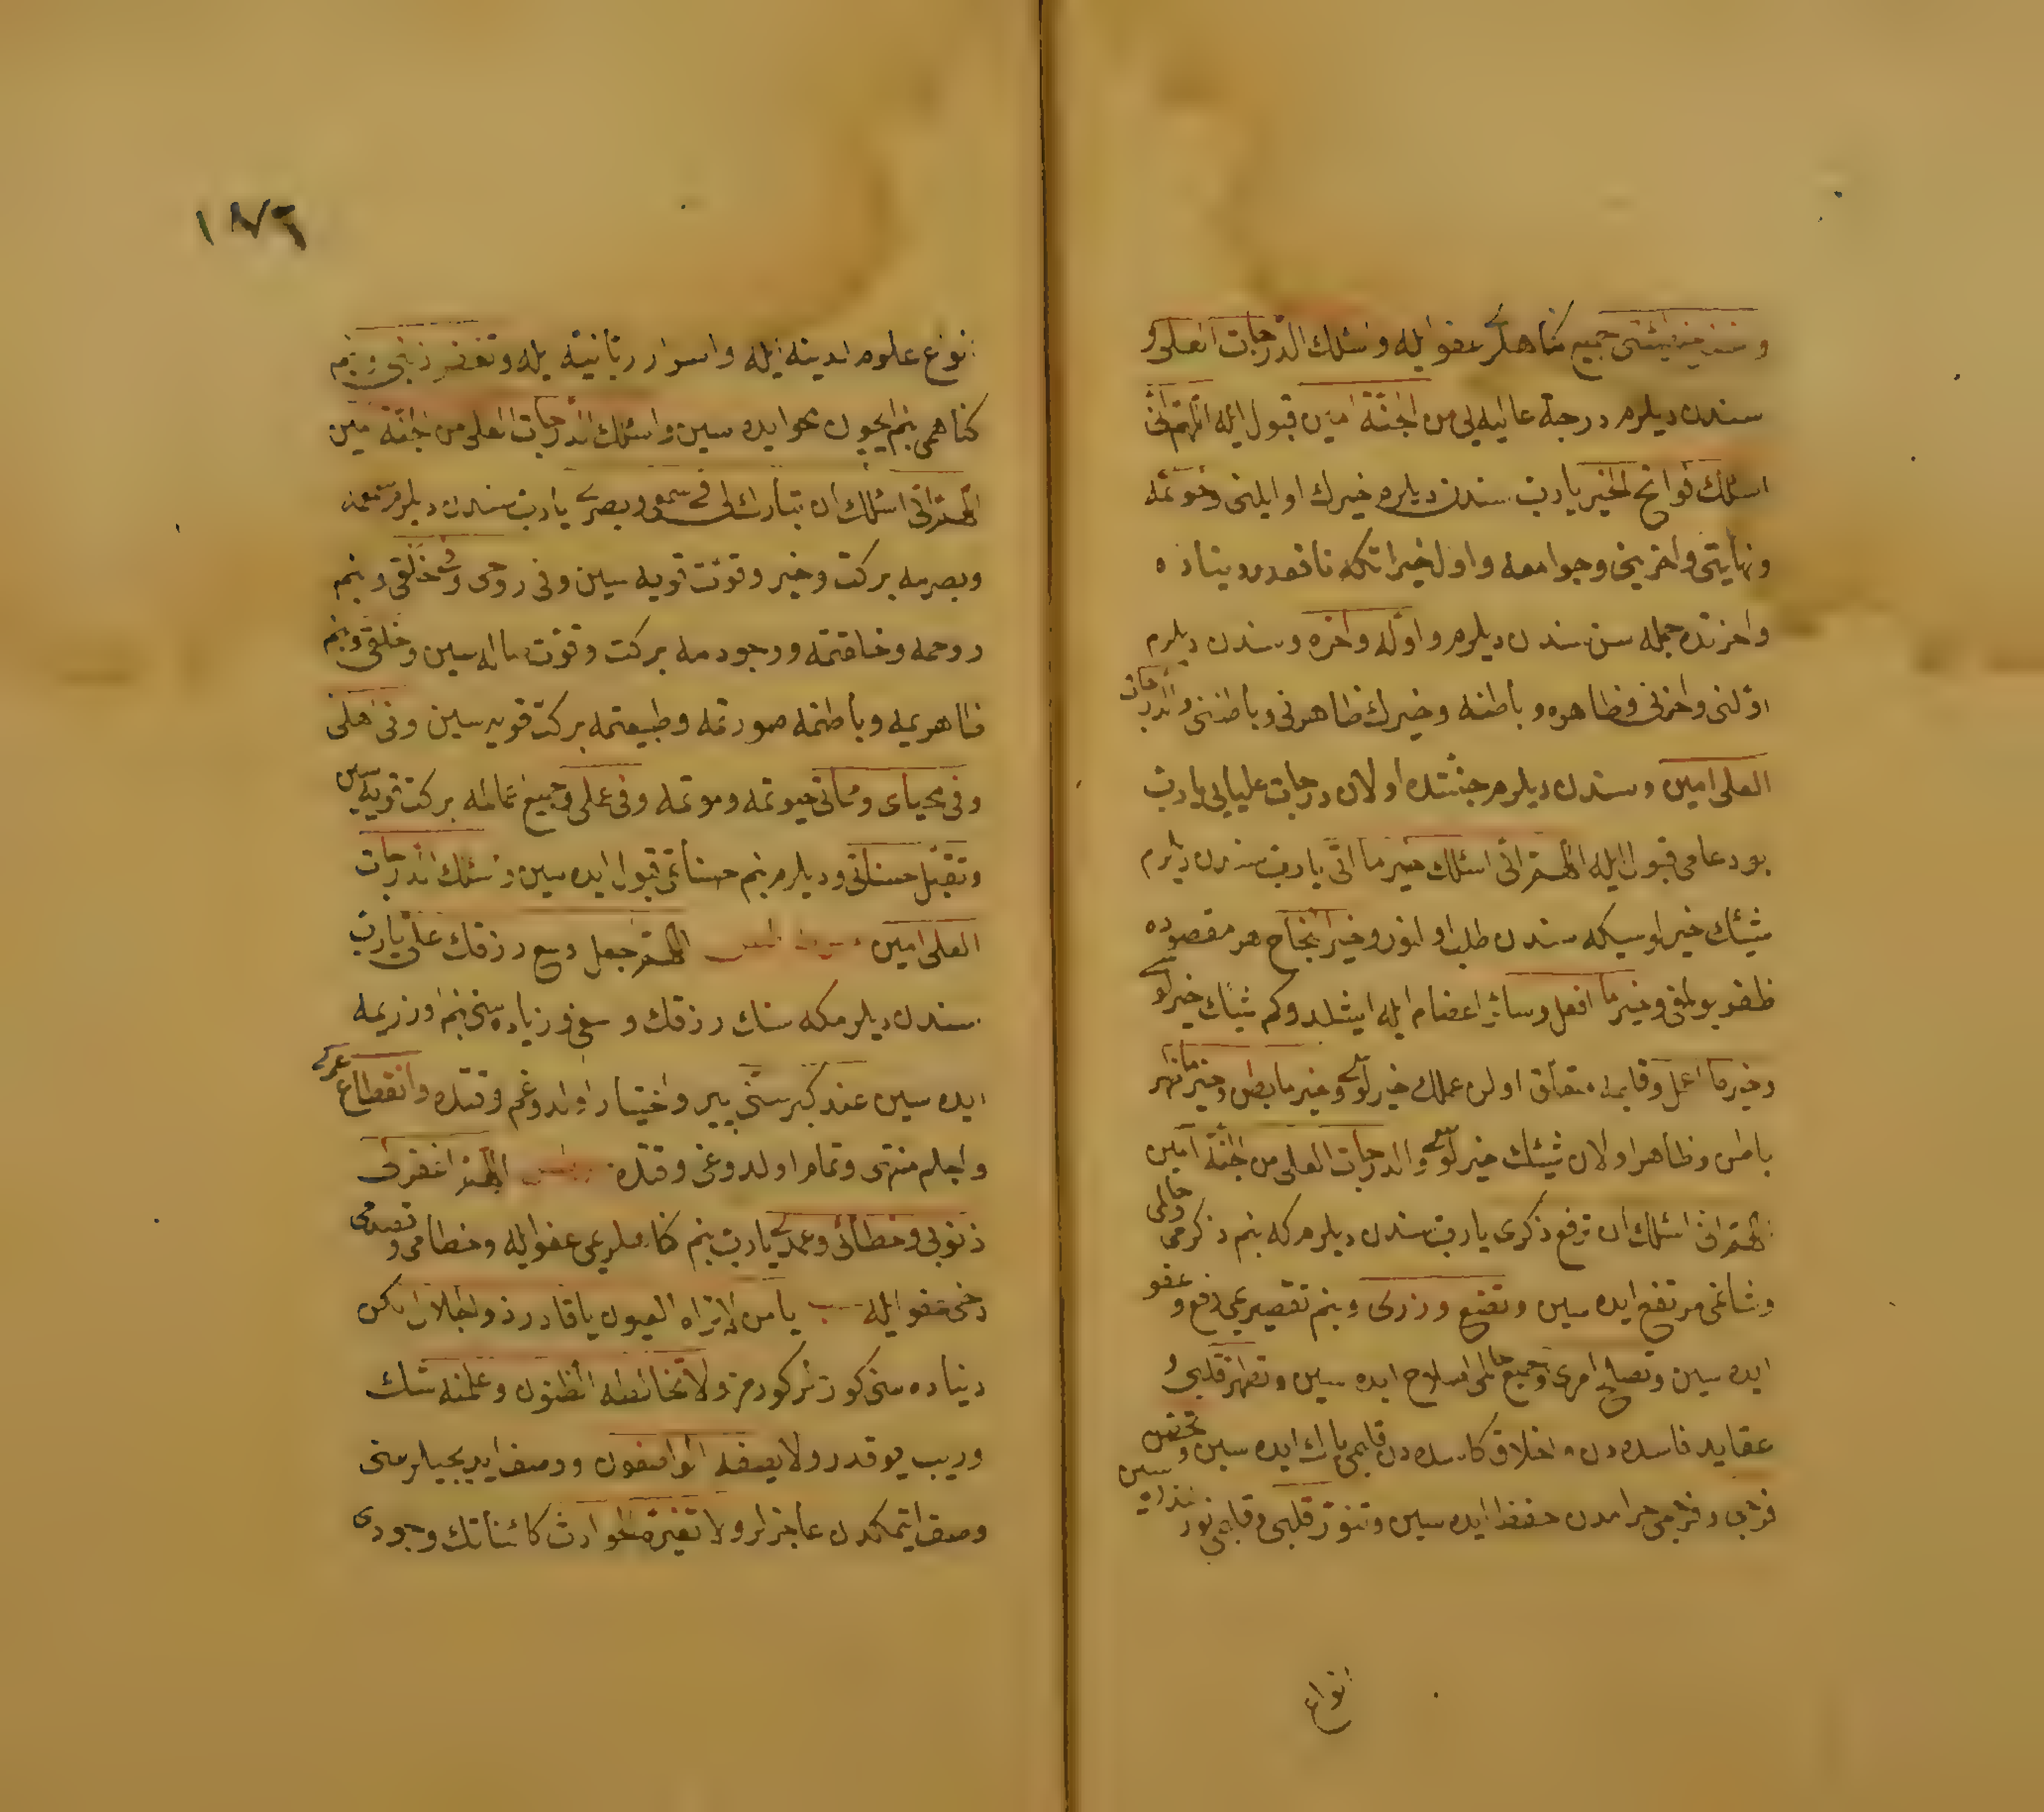 جميع كناهلر عفو ايله واسئلك الدرجات العلى و
سندن ديلرم درجهٔ عاليه لى من الجنّة امين قبول ايله اللهم انى
اسئلك فواتح الخير يا ربّ سندن ديلرم خيرك اوايلنى وخواتمه
ونهايتنى واخرينى وجوامعه واول خيراتكه نافعدر دنياده
واخرتده جمله سن سندن ديلرم واوّله واخره وسندن ديلرم
اوّلنى واخرنى وظاهره وباطنه وخيرك ظاهرنى وباطننى والدرجات
العلى امين وسندن ديلرم جنّتده اولان درجات عليايى يا ربّ
بو دعامى قبول ايله اللهم انى اسئلك خير ما اتى يا ربّ سندن ديلرم
خير سندن طلب اولنور وخير انجاح هر مقصوده
ظفر بولمق وخير ما افعل وسائر اعضام ايله ايشلدوكم شيئك خيرلو
وخير ما اعمل وقلبمه متعلق اولن عملك خيرلو وخير ما بطن وخير ما ظهر
باطن وظاهر اولان شيئك خيرلو والدرجات العلى من الجنّة آمين
اللهم انى اسئلك ان ترفع ذكرى يا ربّ سندن ديلرم كه بنم ذكرمى وحالمى
وشانمى مرتفع ايده سين وتضع وزرى وبنم تقصيرمى رفع وعفو
ايده سين وتصلح امرى وجميع حالمى اصلاح ايده سين وتطهر قلبى و
عقايد فاسده دن واخلاق كاسده دن قلبمى پاك ايده سين وتحصن
فرجى وفرجمى حرامدن حفظ ايده سين وتنوّر قلبى وقلبمى نور
انواع
١٨٦
انواع علوم لدينه ايله واسرار ربّانيّه ايله وتغفر ذنبى وبنم
كناهمى بنم ايچون محو ايده سين واسئلك الدرجات العلى من الجنّة امين
اللهم انى اسئلك ان تبارك لى فى سمعى وبصرى يا ربّ سندن ديلرم سمعمه
وبصرمه بركت وخير وقوّت قويه سين وفى روحى وفى خلقى وبنم
روحمه وخلقتمه ووجودمه بركت وقوّت سين وخلقى وبنم
ظاهريمه وباطنمه صورتمه وطبيعتمه بركت قويه سين وفى اهلى
وفى محياى ومماتى حيوتمه وموتمه وفى عملى وجميع عمالمه بركت قويه سين
وتقبّل حسناتى وديلرم بنم حسناتمى قبول ايده سين واسئلك الدرجات
العلى امين اللهم اجعل وسع رزقك علىّ يا ربّ
سندن ديلرم كه سنك رزقك وسعى وزياده سنى بنم اوزريمه
ايده سين عند كبر سنّى پير واختيار اولدوغم وقتده وانقطاع عمرى
واجلم منتهى وتمام اولدوغى وقتده اللهم اغفر لى
ذنوبى وخطائى وعمدى يا ربّ بنم كناهلريمى عفو ايله وخطامى و
دخى عفو ايله يا من لا تراه العيون يا قادر ذو الجلال
دنياده سنى كوزلر كورمز ولا تخالطه الظنون وعلمنه شك
وريب يوقدر ولا يصفه الواصفون ووصف ايديجيلر سنى
وصف ايتمكدن عاجزلر ولا تغيّره الحوادث كائناتك وجودى